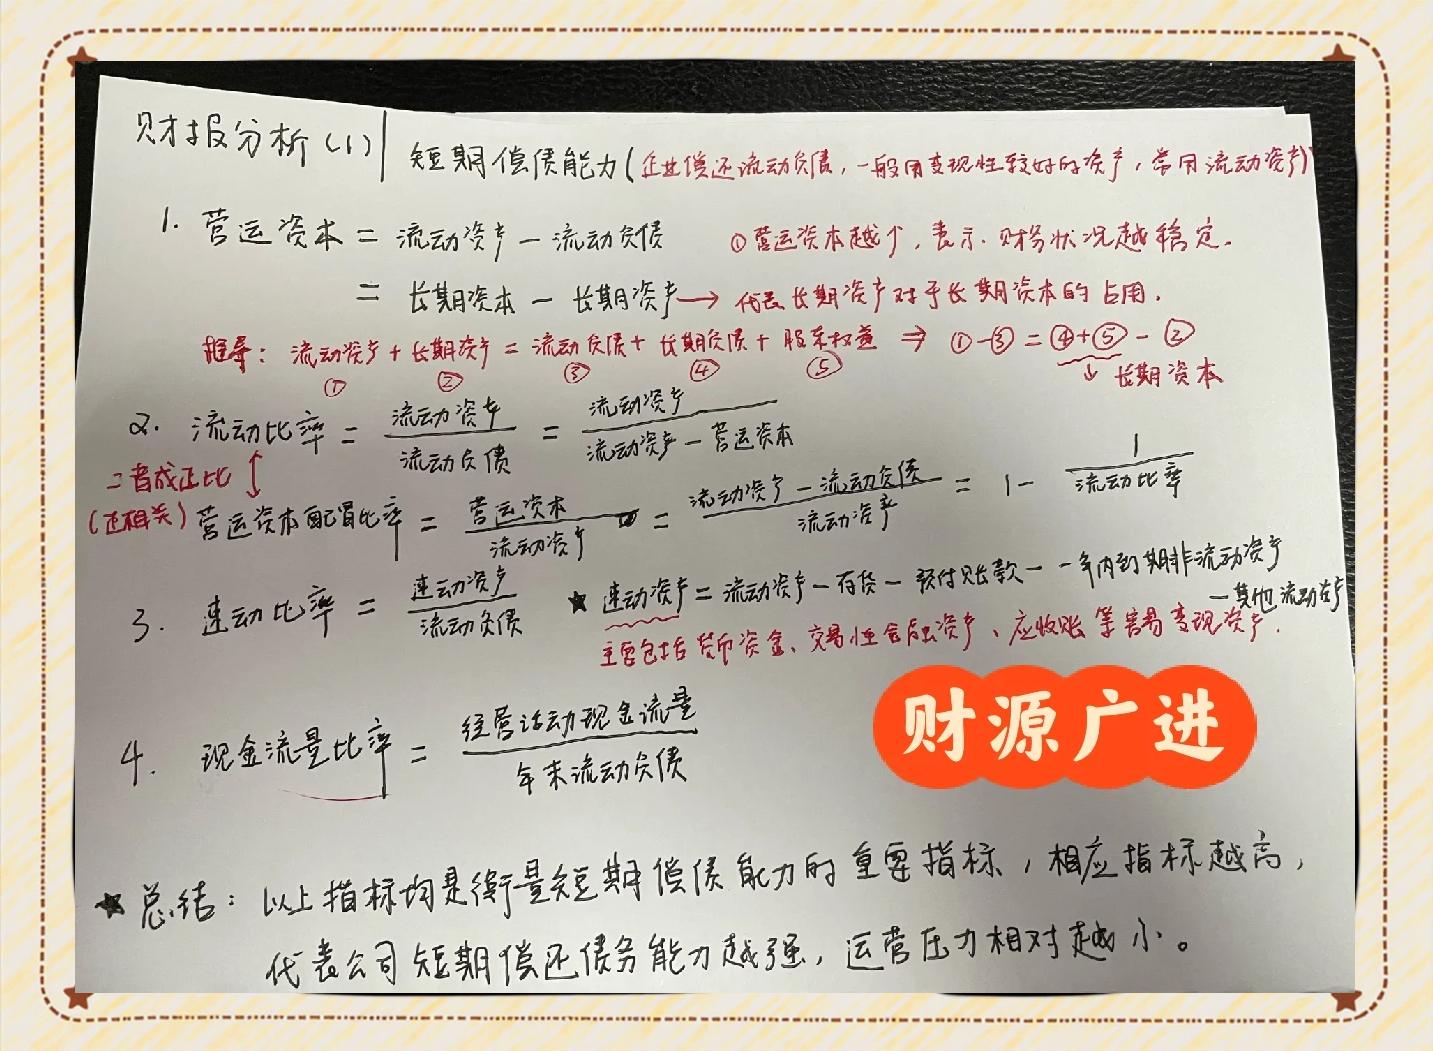 财报分析(1) 短期偿债能力(企业偿还流动负债，一般用变现性较好的资产，常用流动资产)
1. 营运资本 = 流动资产 - 流动负债 ①营运资本越个，表示财务状况越稳定.
= 长期资本 - 长期资产 → 代表长期资产对于长期资本的占用.
推导: 流动资产 + 长期资产 = 流动负债 + 长期负债 + 股东权益 ⇒ ①-③ = ④+⑤ - ②
① ② ③ ④ ⑤ ↓ 长期资本
2. 流动比率 = 流动资产/流动负债 = 流动资产/流动资产 - 营运资本
二者成正比 ↕
(正相关) 营运资本配置比率 = 营运资本/流动资产 = 流动资产 - 流动负债/流动资产 = 1 - 1/流动比率
3. 速动比率 = 速动资产/流动负债 ★ 速动资产 = 流动资产 - 存货 - 预付账款 - 一年内到期非流动资产
- 其他流动资产
主要包括货币资金、交易性金融资产、应收账等容易变现资产.
4. 现金流量比率 = 经营活动现金流量/年末流动负债
财源广进
★ 总结: 以上指标均是衡量短期偿债能力的重要指标，相应指标越高，
代表公司短期偿还债务能力越强，运营压力相对越小。